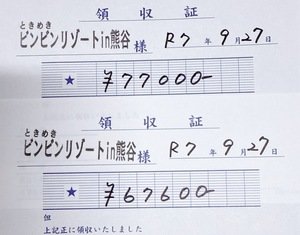 領収証
ときめき
ピンピンリゾートin熊谷様 R7年9月27日
★ ¥77000-
領収証
ときめき
ピンピンリゾートin熊谷様 R7年9月27日
★ ¥67600-
但
上記正に領収いたしました